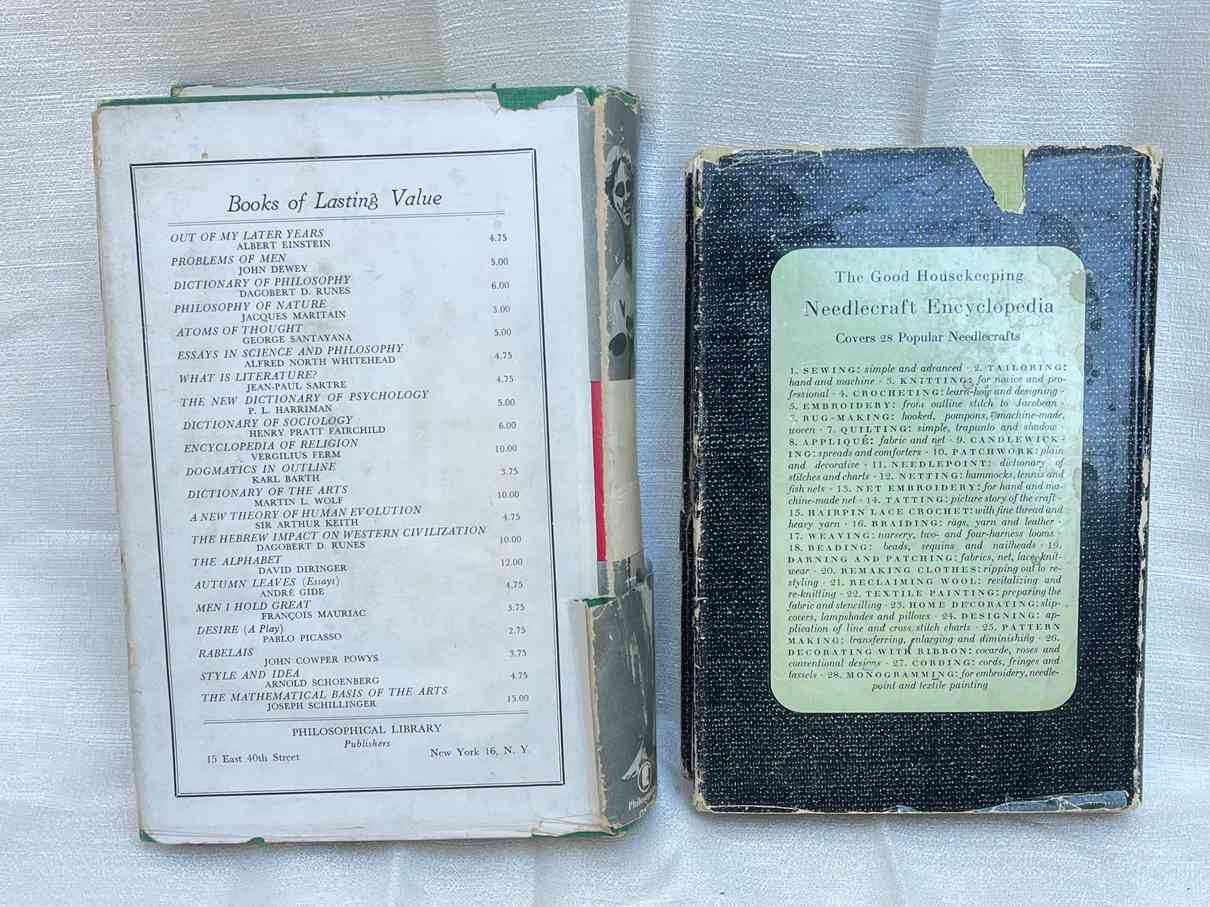 Books of Lasting Value
OUT OF MY LATER YEARS
ALBERT EINSTEIN 4.75
PROBLEMS OF MEN
JOHN DEWEY 5.00
DICTIONARY OF PHILOSOPHY
DAGOBERT D. RUNES 6.00
PHILOSOPHY OF NATURE
JACQUES MARITAIN 3.00
ATOMS OF THOUGHT
GEORGE SANTAYANA 5.00
ESSAYS IN SCIENCE AND PHILOSOPHY
ALFRED NORTH WHITEHEAD 4.75
WHAT IS LITERATURE?
JEAN-PAUL SARTRE 4.75
THE NEW DICTIONARY OF PSYCHOLOGY
P. L. HARRIMAN 5.00
DICTIONARY OF SOCIOLOGY
HENRY PRATT FAIRCHILD 6.00
ENCYCLOPEDIA OF RELIGION
VERGILIUS FERM 10.00
DOGMATICS IN OUTLINE
KARL BARTH 3.75
DICTIONARY OF THE ARTS
MARTIN L. WOLF 10.00
A NEW THEORY OF HUMAN EVOLUTION
SIR ARTHUR KEITH 4.75
THE HEBREW IMPACT ON WESTERN CIVILIZATION
DAGOBERT D. RUNES 10.00
THE ALPHABET
DAVID DIRINGER 12.00
AUTUMN LEAVES (Essays)
ANDRÉ GIDE 4.75
MEN I HOLD GREAT
FRANÇOIS MAURIAC 3.75
DESIRE (A Play)
PABLO PICASSO 2.75
RABELAIS
JOHN COWPER POWYS 3.75
STYLE AND IDEA
ARNOLD SCHOENBERG 4.75
THE MATHEMATICAL BASIS OF THE ARTS
JOSEPH SCHILLINGER 15.00
PHILOSOPHICAL LIBRARY
Publishers
15 East 40th Street New York 16, N. Y.
The Good Housekeeping
Needlecraft Encyclopedia
Covers 28 Popular Needlecrafts
1. SEWING: simple and advanced · 2. TAILORING:
hand and machine · 3. KNITTING: for novice and pro-
fessional · 4. CROCHETING: learn-how and designing ·
5. EMBROIDERY: from outline stitch to Jacobean ·
7. RUG-MAKING: hooked, pompons, machine-made,
woven · 7. QUILTING: simple, trapunto and shadow ·
8. APPLIQUÉ: fabric and net · 9. CANDLEWICK-
ING: spreads and comforters · 10. PATCHWORK: plain
and decorative · 11. NEEDLEPOINT: dictionary of
stitches and charts · 12. NETTING: hammocks, tennis and
fish nets · 13. NET EMBROIDERY: for hand and ma-
chine-made net · 14. TATTING: picture story of the craft ·
15. HAIRPIN LACE CROCHET: with fine thread and
heavy yarn · 16. BRAIDING: rags, yarn and leather ·
17. WEAVING: nursery, two- and four-harness looms ·
18. BEADING: beads, sequins and nailheads · 19.
DARNING AND PATCHING: fabrics, net, lace, knit-
wear · 20. REMAKING CLOTHES: ripping out to re-
styling · 21. RECLAIMING WOOL: revitalizing and
re-knitting · 22. TEXTILE PAINTING: preparing the
fabric and stencilling · 23. HOME DECORATING: slip-
covers, lampshades and pillows · 24. DESIGNING: ap-
plication of line and cross stitch charts · 25. PATTERN
MAKING: transferring, enlarging and diminishing · 26.
DECORATING WITH RIBBON: cocarde, roses and
conventional designs · 27. CORDING: cords, fringes and
tassels · 28. MONOGRAMMING: for embroidery, needle-
point and textile painting